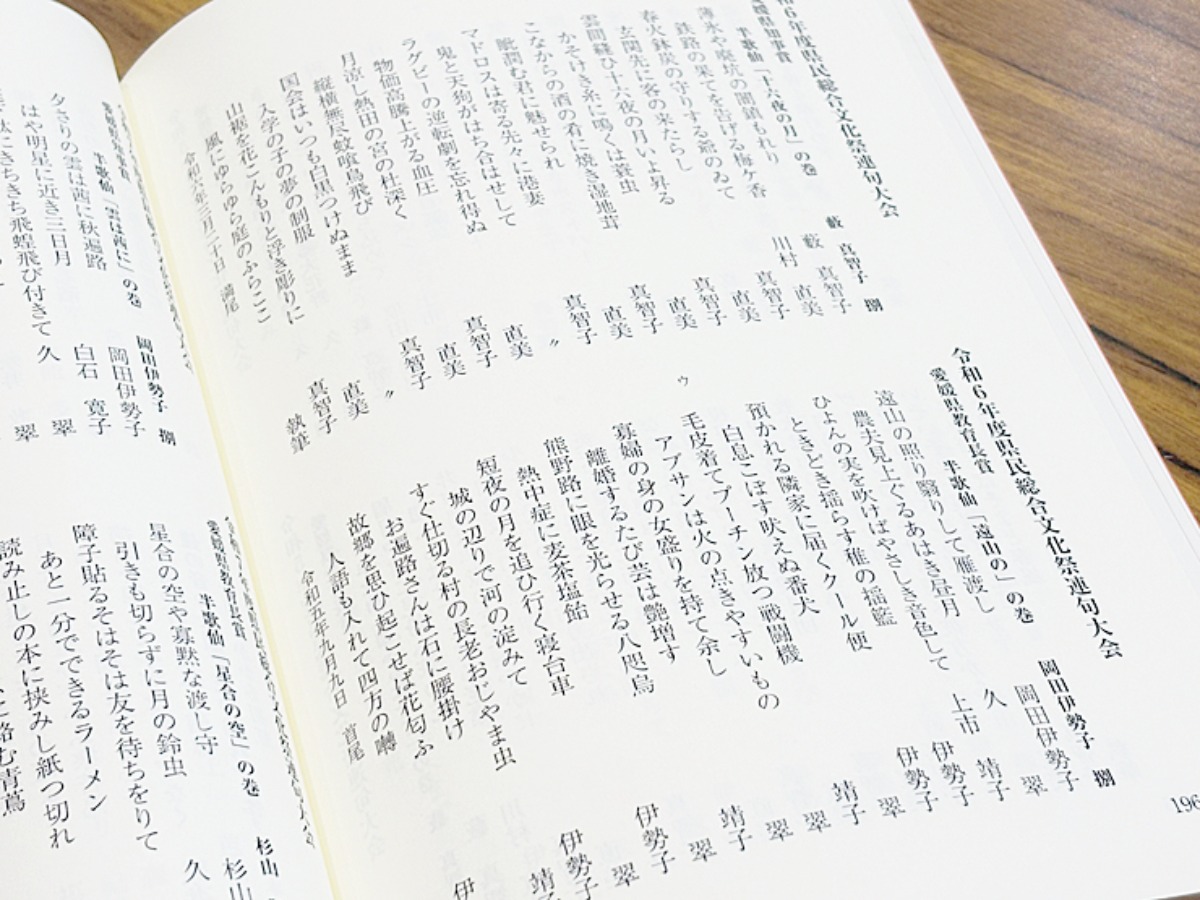 令和６年度県民総合文化祭連句大会
愛媛県知事賞
半歌仙「十六夜の月」の巻
藪 真智子 捌
薄氷や廃坑の間鎖もれり 藪 真智子
鉄路の果てを告げる梅ケ香 川村 直美
春火鉢炭の守りする爺のゐて 真智子
玄関先に客の来たらし 直美
雲間縫ひ十六夜の月いよ昇る 真智子
かそけき糸に鳴くは蓑虫 直美
こなからの酒の肴に焼き湿地茸 真智子
眦潤む君に魅せられ 直美
マドロスは寄る先々に港妻 真智子
鬼と天狗がはち合はせして 〃
ラグビーの逆転劇を忘れ得ぬ 直美
物価高騰上がる血圧 真智子
月涼し熱田の宮の杜深く 直美
縦横無尽蚊喰鳥飛び 真智子
国会はいつも白黒つけぬまま 〃
入学の子の夢の制服 直美
山裾を花こんもりと浮き彫りに 真智子
風にゆらゆら庭のふらここ 執筆
令和六年三月二十日 満尾
令和６年度県民総合文化祭連句大会
愛媛県教育長賞
半歌仙「遠山の」の巻
岡田伊勢子 捌
遠山の照り翳りして雁渡し 岡田伊勢子
農夫見上ぐるあはき昼月 翠
ひよんの実を吹けばやさしき音色して 久 靖子
ときどき揺らす稚の揺籃 上市 伊勢子
預かれる隣家に届くクール便 伊勢子
白息こぼす吠えぬ番犬 伊勢子
ゥ
毛皮着てプーチン放つ戦闘機 翠
アブサンは火の点きやすいもの 靖子
寡婦の身の女盛りを持て余し 翠
離婚するたび芸は艶増す 翠
熊野路に眼を光らせる八咫烏 靖子
熱中症に麦茶塩飴 翠
短夜の月を追ひ行く寝台車 伊勢子
城の辺りで河の淀みて 翠
すぐ仕切る村の長老おじやま虫 伊勢子
お遍路さんは石に腰掛け 靖子
故郷を思ひ起こせば花匂ふ
人語も入れて四方の囀
令和五年九月九日 首尾
196
愛媛県知事賞
半歌仙「雲は茜に」の巻
岡田伊勢子 捌
夕さりの雲は茜に秋遍路 岡田伊勢子
はや明星に近き三日月 白石 寛子
きちきち飛蝗飛び付きて 久 翠
愛媛県教育長賞
半歌仙「星合の空」の巻
杉山
星合の空や寡黙な渡し守 杉山
引きも切らずに月の鈴虫 久
障子貼るそはそは友を待ちをりて
あと一分でできるラーメン
読み止しの本に挟みし紙つ切れ